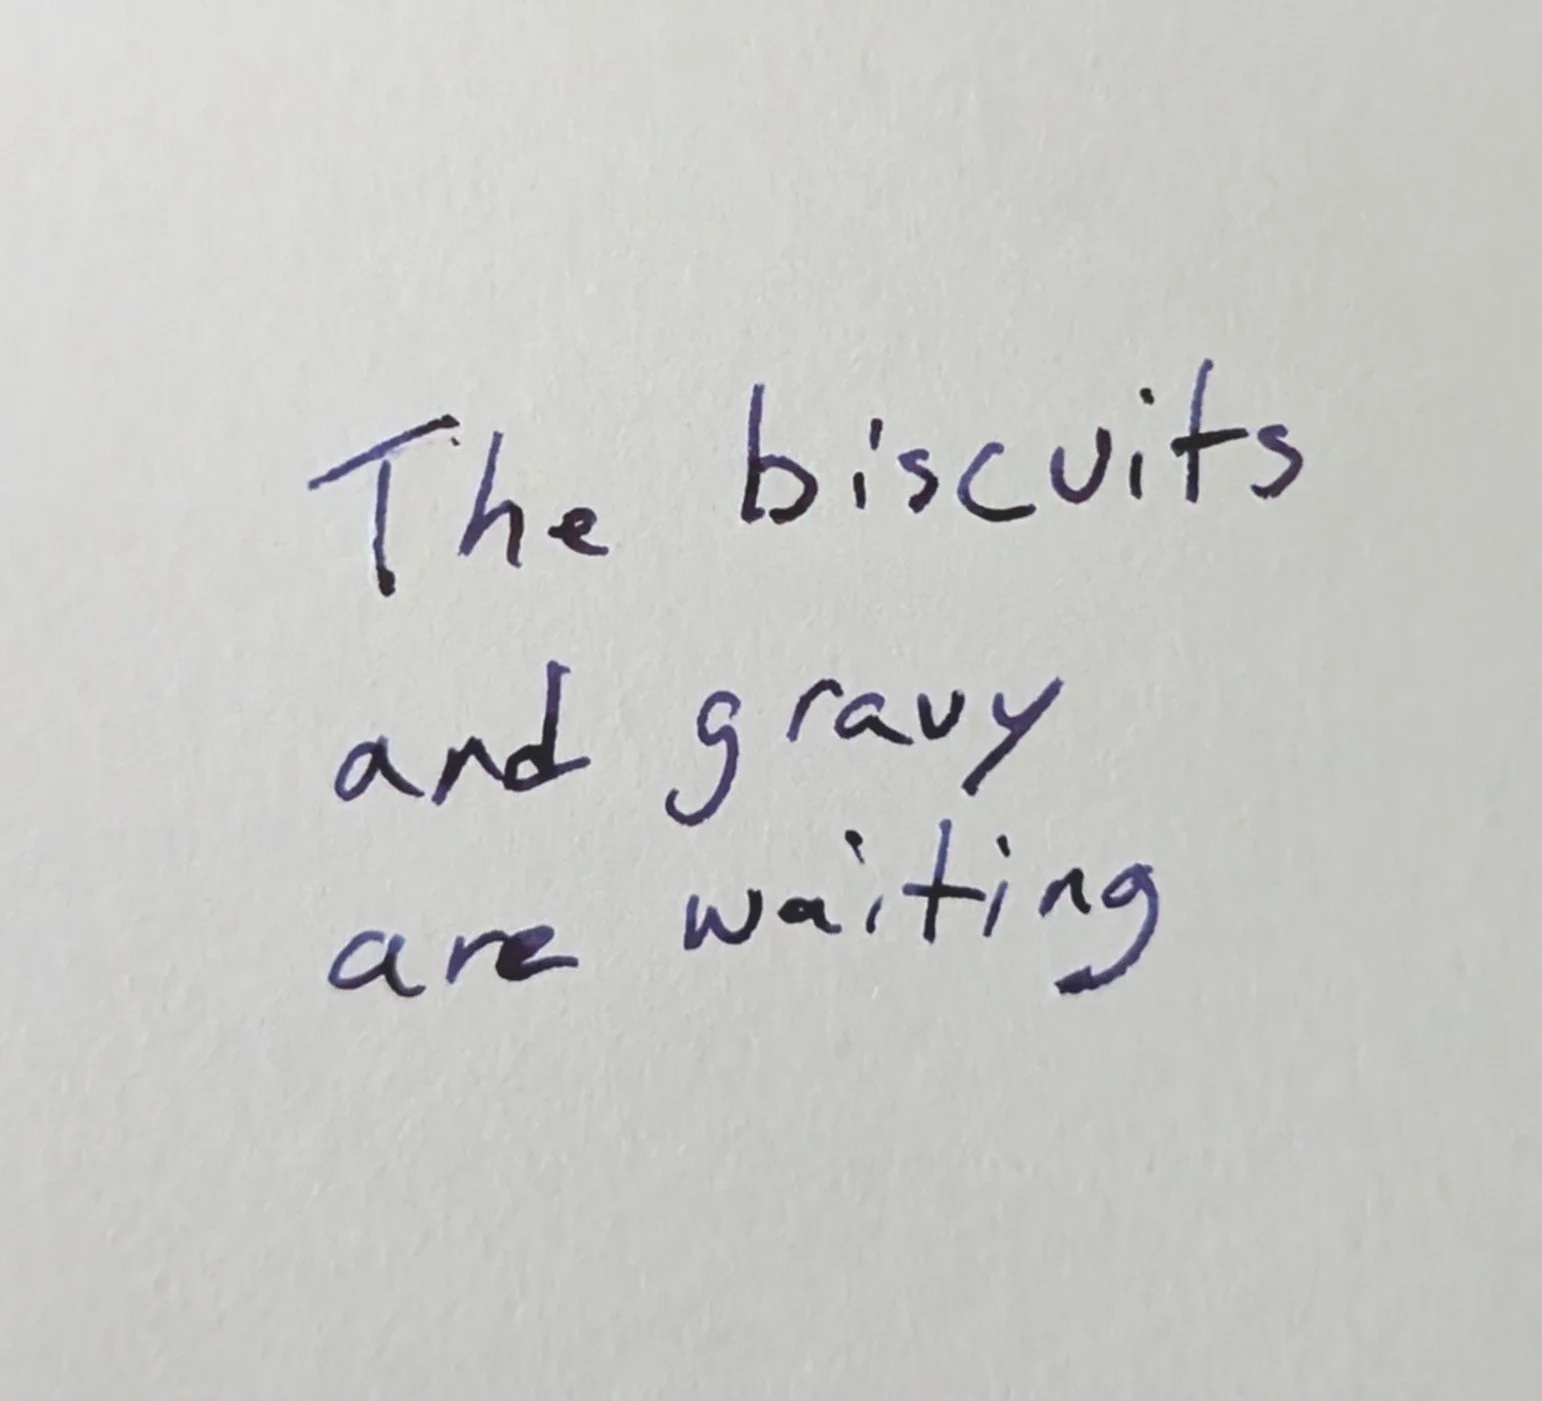 The biscuits
and gravy
are waiting